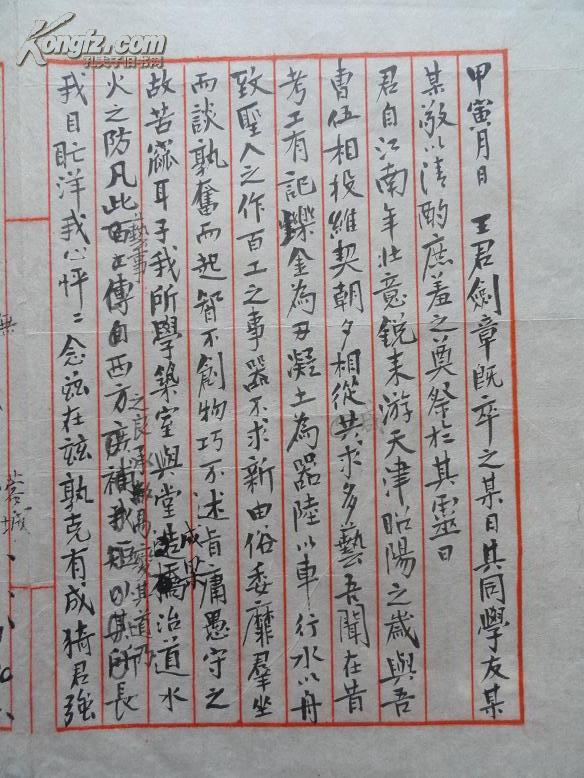 Kongfz.com
孔夫子旧书网
甲寅月日　王君劍章既卒之某日其同學友某
某敬以清酌庶羞之奠祭於其靈曰
君自江南年壯意鋭来游天津昭陽之歲與吾
曹伍相投維契朝夕相從共求多藝吾聞在昔
考工有記鑠金為刃凝土為器陸以車行水以舟
致聖人之作百工之事器不求新由俗委靡羣坐
而談孰奮而起智不創物巧不述旨庸愚守之
故苦窳耳予我所學築室與堂成梁治道水
火之防凡此藝事傳自西方之良其所長
我目眡洋我心怦二念兹在兹孰克有成猗君強